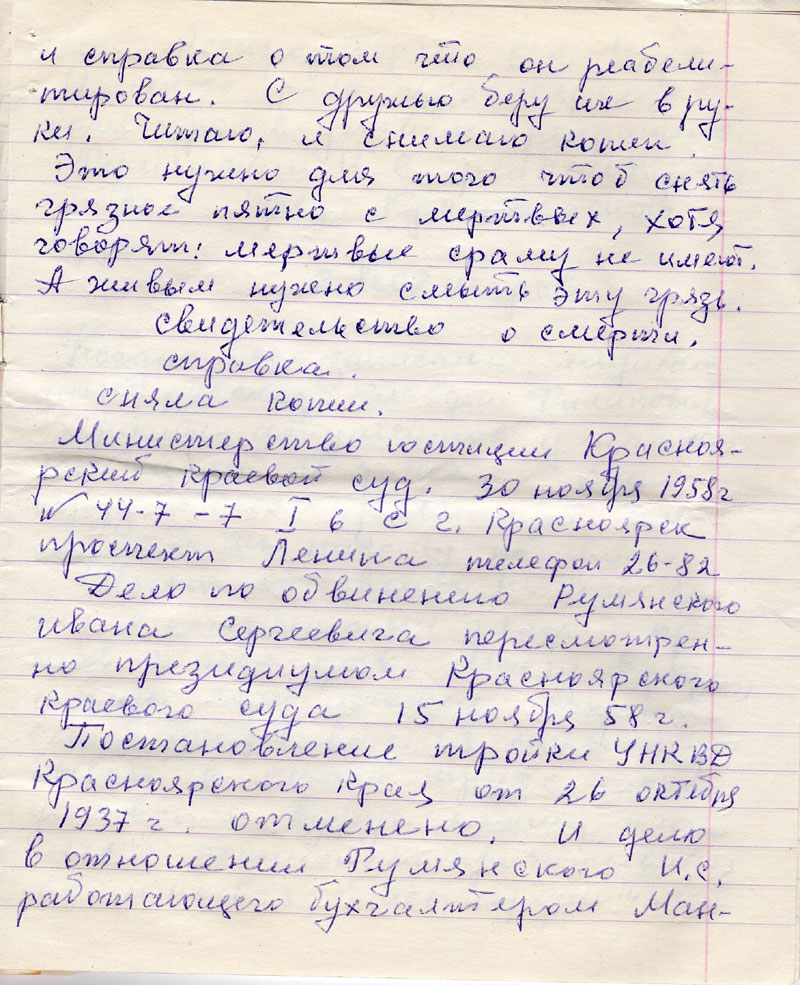 и справка о том что он реабели-
тирован. С дружью беру их в ру-
ки. Читаю, и снимаю копии.
Это нужно для того чтоб снять
грязное пятно с мертвых, хотя
говорят: мертвые сраму не имеют.
А живым нужно смыть эту грязь.
свидетельство о смерти.
справка.
сняла копии.
Министерство юстиции Красноя-
рский краевой суд. 30 ноября 1958г
№ 44-7-7 I 6 с г. Красноярск
проспект Ленина телефон 26-82
Дело по обвинению Румянского
ивана Сергеевича пересмотрен-
но президиумом Красноярского
краевого суда 15 ноября 58 г.
Постановление тройки УНКВД
Красноярского края от 26 октября
1937 г. отменено. И дело
в отношении Румянского И.С.
работающего бухгалтером Ман-